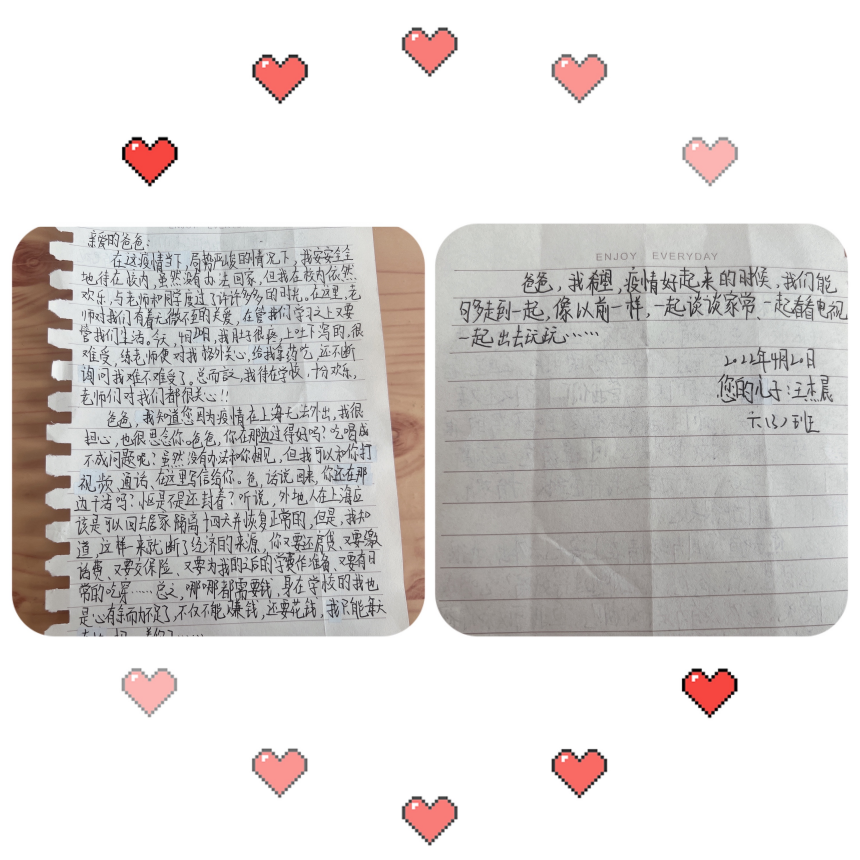 亲爱的爸爸:
在这疫情当下,局势严峻的情况下,我安安全全
地待在校内,虽然没有办法回家,但我在校内依然
欢乐,与老师和同学度过了许许多多的时光。在这里,老
师对我们有着无微不至的关爱,在管我们学习又要
管我们生活。今天,我肚子很疼,上吐下泻的,很
难受,练老师便对我格外关心,给我拿药吃,还不断
询问我难不难受了。总而言之,我待在学校,十分欢乐,
老师们对我们都很关心!!
爸爸,我知道您因为疫情在上海无法外出,我很
担心,也很思念你。爸爸,你在那边过得好吗?吃喝成
不成问题呢?虽然没有办法和你相见,但我可以和你打
视频、通话、在这里写信给你。爸,话说回来,你还在那
边干活吗?還是不是还封着?听说,外地人在上海应
该是可以回去居家隔离十四天并恢复正常的,但是,我知
道,这样一来就断了经济的来源,你又要还房贷、又要缴
话费、又要交保险、又要为我的之后的学费作准备、又要有日
常的吃穿……总之,哪哪都需要钱,身在学校的我也
是心有余而力不足了,不仅不能赚钱,还要花钱,我只能每天
ENJOY EVERYDAY
爸爸,我希望,疫情好起来的时候,我们能
够走到一起,像以前一样,一起谈谈家常、一起看看电视
一起出去玩玩……
2022年4月20日
您的儿子:王杰晨
六(3)班